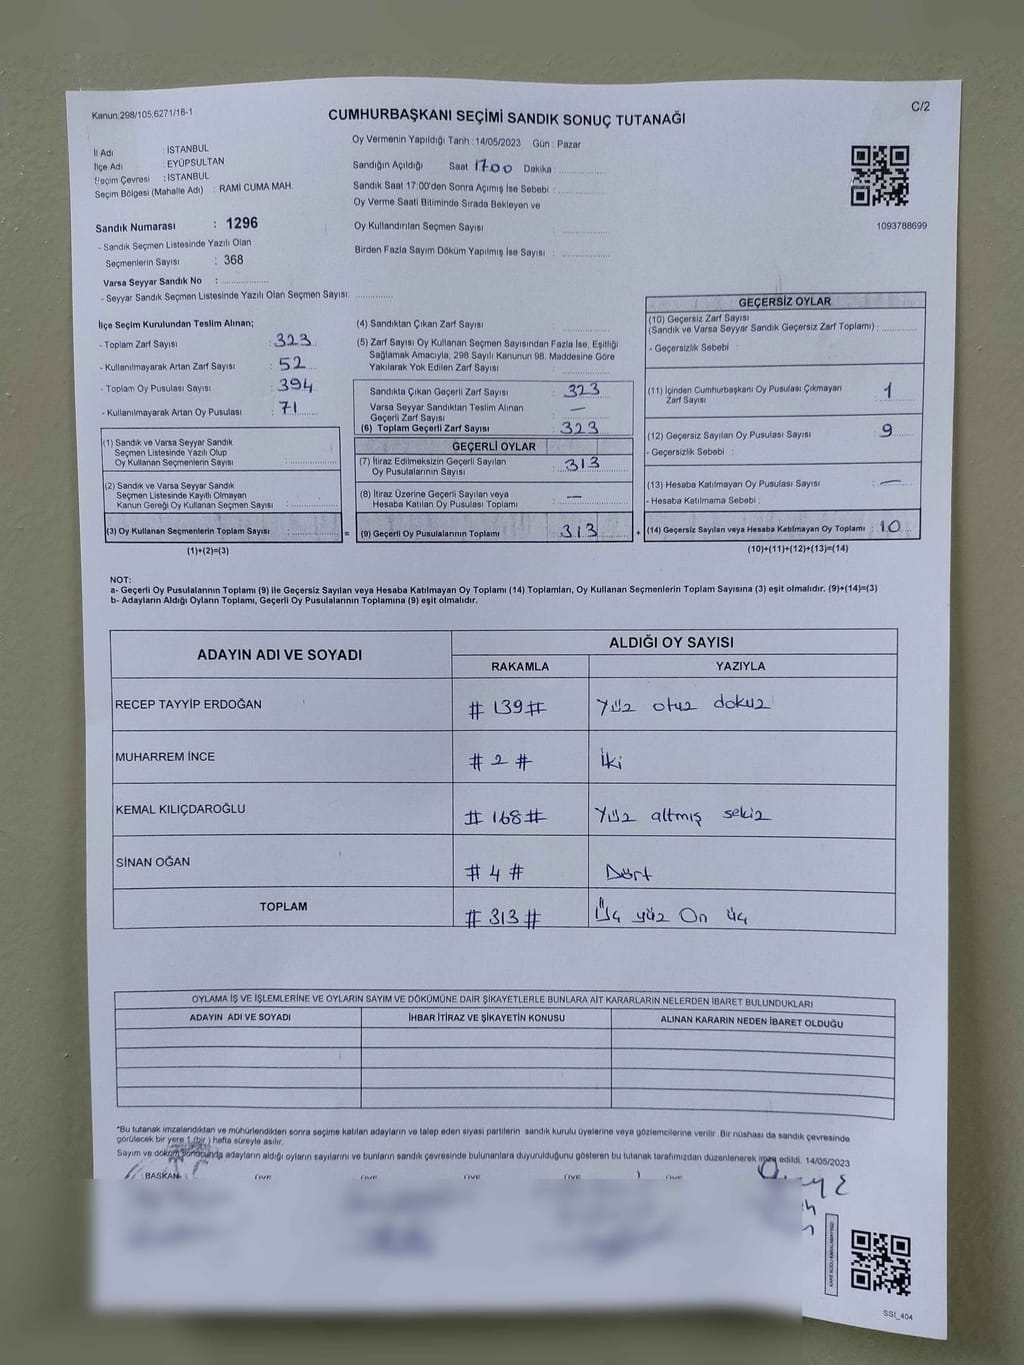 Kanun:298/105;6271/18-1
CUMHURBAŞKANI SEÇİMİ SANDIK SONUÇ TUTANAĞI
C/2
İl Adı : İSTANBUL
İlçe Adı : EYÜPSULTAN
Seçim Çevresi : İSTANBUL
Seçim Bölgesi (Mahalle Adı) : RAMİ CUMA MAH.
Oy Vermenin Yapıldığı Tarih : 14/05/2023 Gün : Pazar
Sandığın Açıldığı Saat 17.00 Dakika : ..............
Sandık Saat 17:00'den Sonra Açımış İse Sebebi : ..............
Oy Verme Saati Bitiminde Sırada Bekleyen ve
Oy Kullandırılan Seçmen Sayısı : ..............
Birden Fazla Sayım Döküm Yapılmış İse Sayısı : ..............
1093788699
Sandık Numarası : 1296
- Sandık Seçmen Listesinde Yazılı Olan
Seçmenlerin Sayısı : 368
Varsa Seyyar Sandık No : ..............
- Seyyar Sandık Seçmen Listesinde Yazılı Olan Seçmen Sayısı: ..............
İlçe Seçim Kurulundan Teslim Alınan;
- Toplam Zarf Sayısı : 323
- Kullanılmayarak Artan Zarf Sayısı : 52
- Toplam Oy Pusulası Sayısı : 394
- Kullanılmayarak Artan Oy Pusulası : 71
(1) Sandık ve Varsa Seyyar Sandık
Seçmen Listesinde Yazılı Olup
Oy Kullanan Seçmenlerin Sayısı : ..............
(2) Sandık ve Varsa Seyyar Sandık
Seçmen Listesinde Kayıtlı Olmayan
Kanun Gereği Oy Kullanan Seçmen Sayısı : ..............
(3) Oy Kullanan Seçmenlerin Toplam Sayısı : ..............
(1)+(2)=(3)
=
(4) Sandıktan Çıkan Zarf Sayısı : ..............
(5) Zarf Sayısı Oy Kullanan Seçmen Sayısından Fazla İse, Eşitliği
Sağlamak Amacıyla, 298 Sayılı Kanunun 98. Maddesine Göre
Yakılarak Yok Edilen Zarf Sayısı : ..............
Sandıkta Çıkan Geçerli Zarf Sayısı : 323
Varsa Seyyar Sandıktan Teslim Alınan
Geçerli Zarf Sayısı : —
(6) Toplam Geçerli Zarf Sayısı : 323
GEÇERLİ OYLAR
(7) İtiraz Edilmeksizin Geçerli Sayılan
Oy Pusulalarının Sayısı : 313
(8) İtiraz Üzerine Geçerli Sayılan veya
Hesaba Katılan Oy Pusulası Toplamı : —
(9) Geçerli Oy Pusulalarının Toplamı : 313
+
GEÇERSİZ OYLAR
(10) Geçersiz Zarf Sayısı
(Sandık ve Varsa Seyyar Sandık Geçersiz Zarf Toplamı) : ..............
- Geçersizlik Sebebi :
(11) İçinden Cumhurbaşkanı Oy Pusulası Çıkmayan
Zarf Sayısı : 1
(12) Geçersiz Sayılan Oy Pusulası Sayısı : 9
- Geçersizlik Sebebi :
(13) Hesaba Katılmayan Oy Pusulası Sayısı : —
- Hesaba Katılmama Sebebi :
(14) Geçersiz Sayılan veya Hesaba Katılmayan Oy Toplamı : 10
(10)+(11)+(12)+(13)=(14)
NOT:
a- Geçerli Oy Pusulalarının Toplamı (9) ile Geçersiz Sayılan veya Hesaba Katılmayan Oy Toplamı (14) Toplamları, Oy Kullanan Seçmenlerin Toplam Sayısına (3) eşit olmalıdır. (9)+(14)=(3)
b- Adayların Aldığı Oyların Toplamı, Geçerli Oy Pusulalarının Toplamına (9) eşit olmalıdır.
ADAYIN ADI VE SOYADI
ALDIĞI OY SAYISI
RAKAMLA YAZIYLA
RECEP TAYYİP ERDOĞAN # 139 # Yüz otuz dokuz
MUHARREM İNCE # 2 # İki
KEMAL KILIÇDAROĞLU # 168 # Yüz altmış sekiz
SİNAN OĞAN # 4 # Dört
TOPLAM # 313 # Üç yüz On üç
OYLAMA İŞ VE İŞLEMLERİNE VE OYLARIN SAYIM VE DÖKÜMÜNE DAİR ŞİKAYETLERLE BUNLARA AİT KARARLARIN NELERDEN İBARET BULUNDUKLARI
ADAYIN ADI VE SOYADI İHBAR İTİRAZ VE ŞİKAYETİN KONUSU ALINAN KARARIN NEDEN İBARET OLDUĞU
*Bu tutanak imzalandıktan ve mühürlendikten sonra seçime katılan adayların ve talep eden siyasi partilerin sandık kurulu üyelerine veya gözlemcilerine verilir. Bir nüshası da sandık çevresinde
görülecek bir yere 1 (bir) hafta süreyle asılır.
Sayım ve döküm sonucunda adayların aldığı oyların sayılarını ve bunların sandık çevresinde bulunanlara duyurulduğunu gösteren bu tutanak tarafımızdan düzenlenerek imza edildi. 14/05/2023
BAŞKAN ÜYE ÜYE ÜYE ÜYE ÜYE
SSI_404